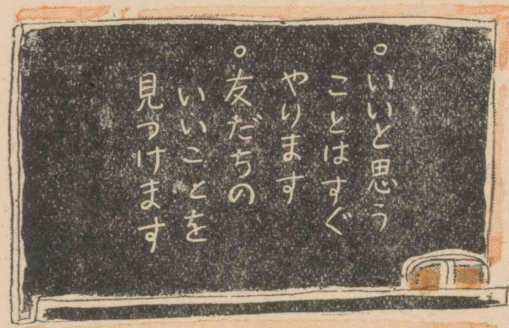 ○いいと思う
ことはすぐ
やります
○友だちの
いいことを
見つけます